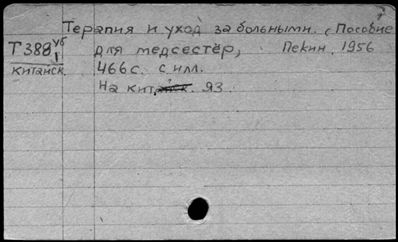 Терапия и уход за больными. (Пособие
Т388 уб для медсестёр, Пекин, 1956
1
китайск. 466с. с илл.
На кит. яз.